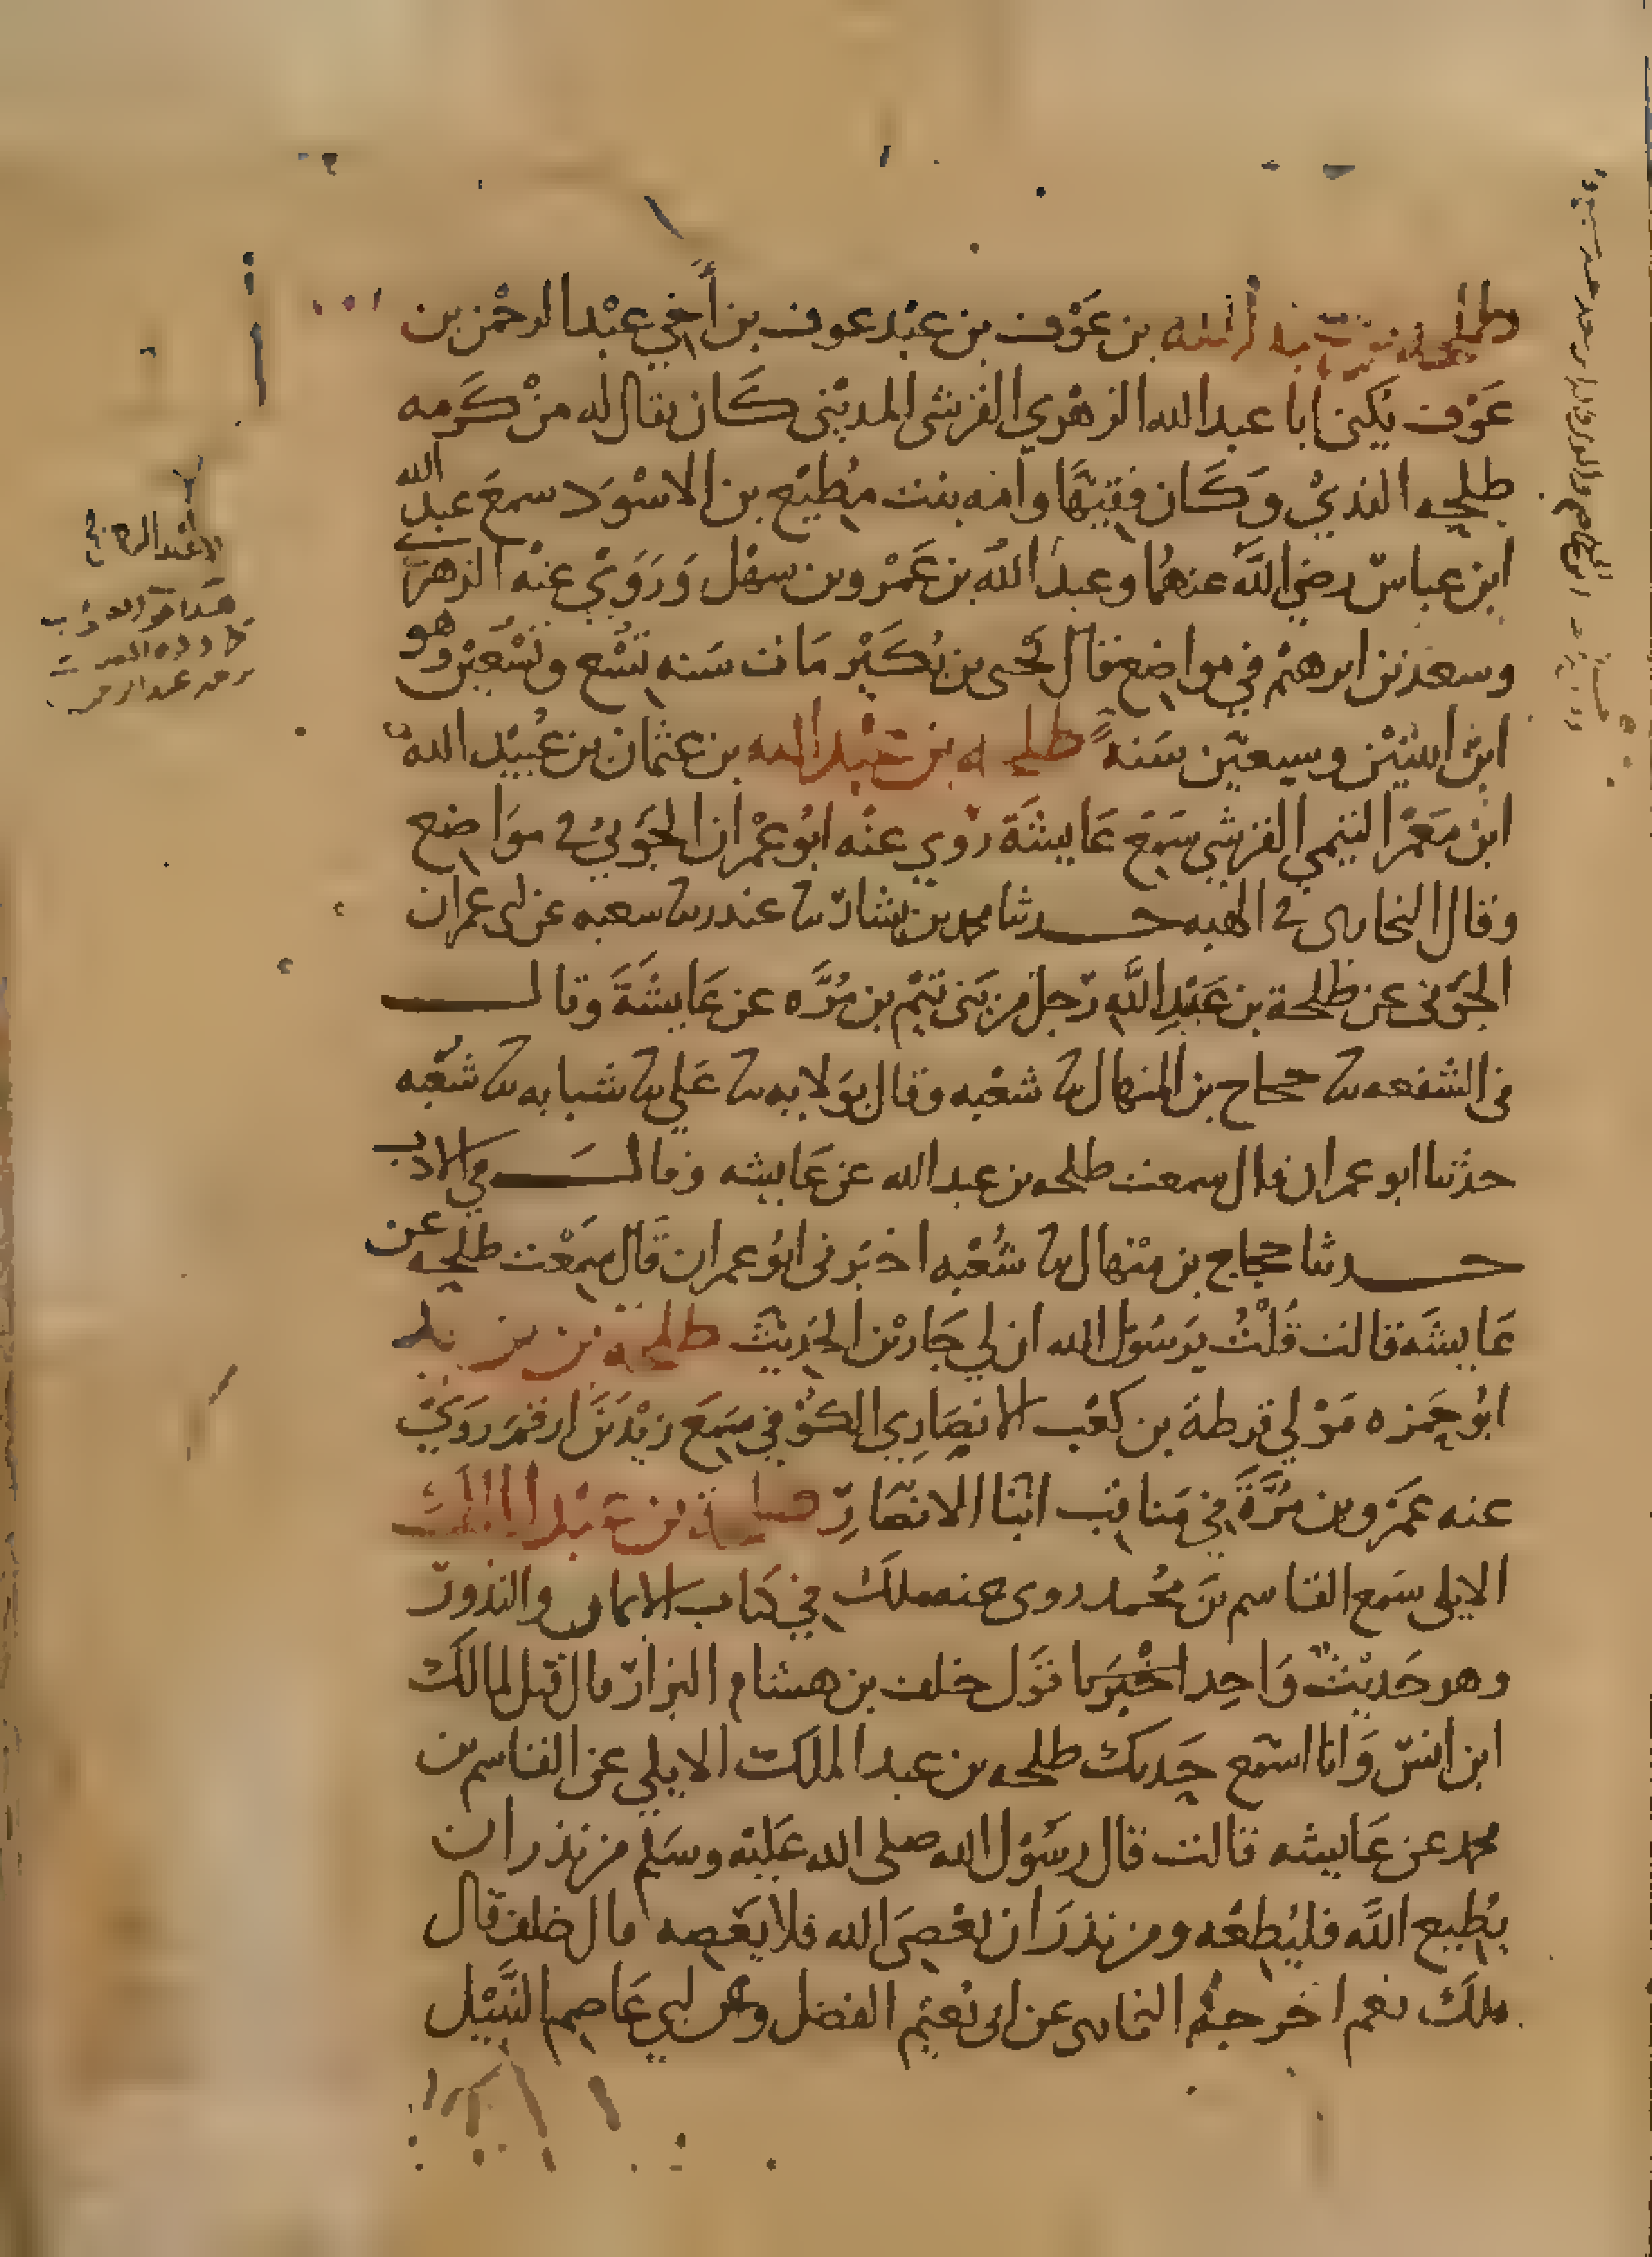 طلحة بن عبد الله بن عَوْف بن عبْد عوف بن أخي عبْد الرحْمن بن
عَوْف يكنى أبا عبد الله الزهْري القرشى المديْنى كَان يقال له منْ كَرمه
طلحه الندىْ وَكَان فقيهًا وامه بنت مُطيْع بن الاسْوَد سمعَ عبد الله
ابن عباسْ رضي اللَّه عنهمُا وعبدَ اللَّه بن عَمْرو بن سهْل وَرَوَيْ عنْه الزهريّ
وسعْد بن ابرهيْم في مواضع قال يحْيى بن بُكَيْر مَات سَنه تسْع وتسْعِيْن وهو
ابن اثنتيْن وسبعيْن سَنهً طلحه بن عبْد الله بن عثمان بن عُبيْد الله
ابن مَعْمَر التيمي القرشي سَمعَ عَايشةَ روي عنْه ابُو عمْران الجوْنيُ في موَاضع
وقال البخارى في الهبه حدثنا محمد بن بشارّ ثنا غندر ثنا سعبه عن ابى عمران
الجوْنى عن طلحة بن عَبْدِ اللَّه رَجل من بَنى تيْم بن مُرَّه عن عَايشَةَ وقال
فى الشفعه ثنا حجاح بن المنهال ثنا شعْبه وقال بوَلابه ثنا عَلي ثنا شبابه ثنا شعْبه
حدثنا ابو عمران قال سمعت طلحه بن عبد الله عن عَايشه وقال في الادب
حدثنا حجاج بن منْهال ثنا شُعْبه اخبَرنى ابوُ عمران قَال سَمعْت طلحه عن
عَايشَه قالت قُلْتُ يرَسُوْل الله ان لي جَاريْن الحَديْثَ طلحة بن يزيد
ابُو حَمزه مَوْلي قرظة بن كعْب الانصَارِي الكوُفي سَمعَ زيْد بَنَ ارقمَ رَوَيْ
عنه عَمَرو بن مُرَّةً في مَناقبْ ابنْا الانصْارِّ طلحة بن عبْد الملك
الايلى سَمع القاسم بَن محُمد روى عنه ملك في كتاب الايمان والنذور
وهو حَديْثْ وَاحِد اخْبَرَنا نزَل خلف بن هشام البزارّ قال قيل لمالَك
ابن انسْ وَانا اسْمَع حَدثك طلحه بن عبد الملكَ الايلي عن القاسم بن
محمد عن عَايشه قالت قال رسَوُل الله صلى الله عَليْه وسَلم من نذر ان
يُطيع اللَّه فليُطعْه ومن نذرَ ان يعْصىَ الله فلا يَعْصه قال خلف قال
ملَك نعم اخرجهُ البخارى عن ابى نُعيْم الفضل وعن ابي عَاصم النَّبيْل